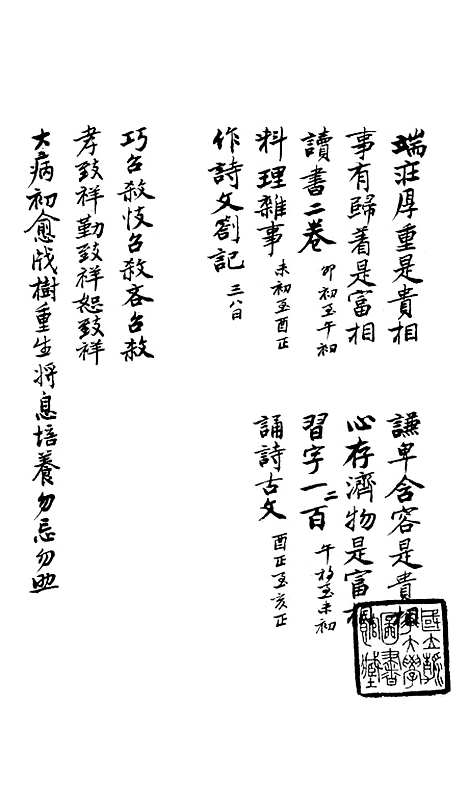 端莊厚重是貴相
謙卑含容是貴相
事有歸着是富相
心存濟物是富相
讀書二卷 卯初至午初
習字一二百 午初至未初
料理雜事 未初至酉正
誦詩古文 酉正至亥正
作詩文劄記 三八日
巧召殺忮召殺吝召殺
孝致祥勤致祥恕致祥
大病初愈戕樹重生將息培養勿忘勿助